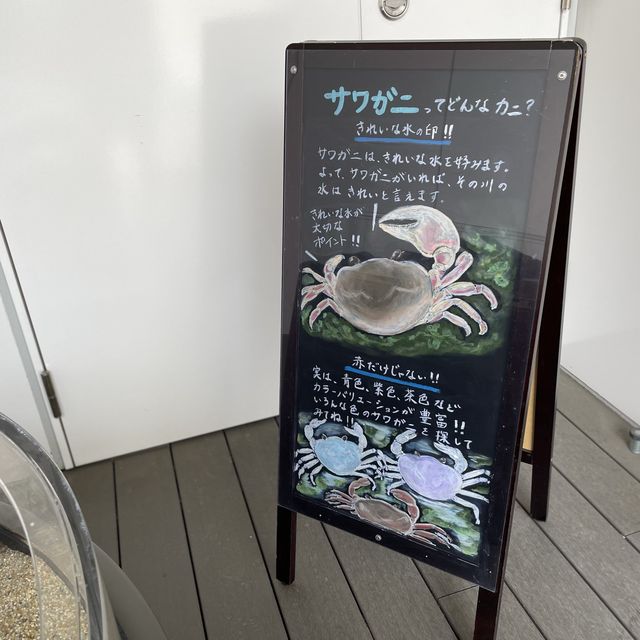 サワガニってどんなカニ?
きれいな水の印!!
サワガニは、きれいな水を好みます。
よって、サワガニがいれば、その川の
水はきれいと言えます。
きれいな水が
大切な
ポイント!!
赤だけじゃない!!
実は、青色、紫色、茶色など
カラーバリエーションが豊富!!
いろんな色のサワガニを探して
みてね!!